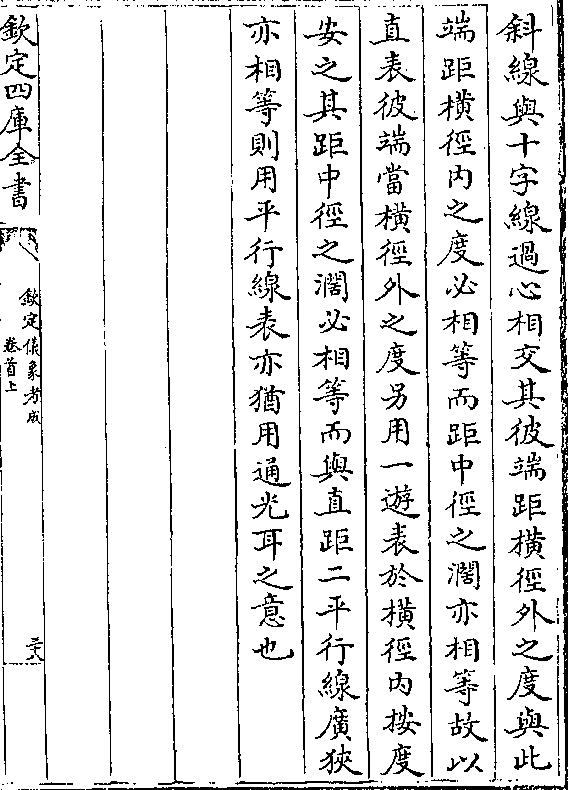 斜線與十字線過心相交其彼端距橫徑外之度與此
端距橫徑内之度必相等而距中徑之濶亦相等故以
直表彼端當橫徑外之度另用一遊表於橫徑内按度
安之其距中徑之濶必相等而與直距二平行線廣狹
亦相等則用平行線表亦猶用通光耳之意也
欽定四庫全書
欽定儀象考成
卷首上
三十八